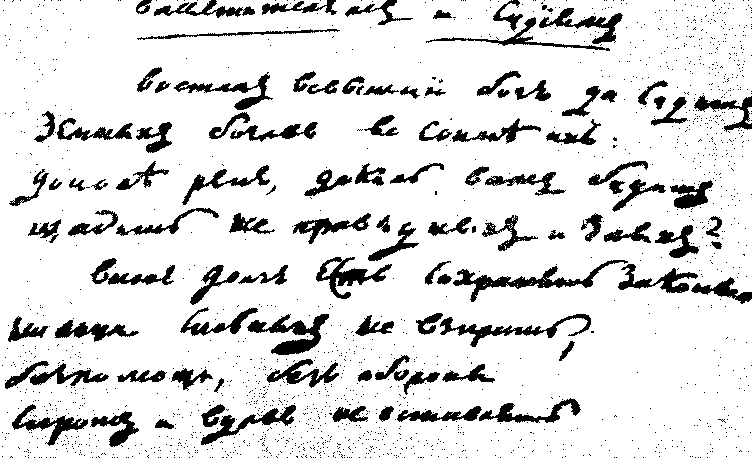 Властителямъ и Судіямъ
восталъ всевышній богъ да судитъ
Земныхъ боговъ во сонмѣ ихъ:
доколѣ рекъ, доколь вамъ будетъ
щадить не праведныхъ и злыхъ?
вашъ долгъ Есть сохранять законы
на лица сильныхъ не взирать,
безъ помощи, безъ обороны
сиротъ и вдовъ не оставлять